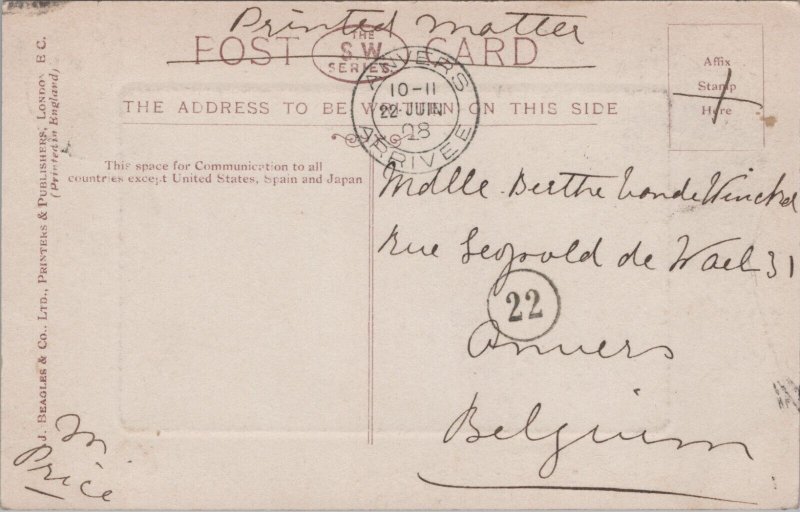 Printed Matter
POST CARD
THE
S W
SERIES.
Affix
Stamp
Here
ANVERS
10-11
22 JUIN
08
ARRIVEE
THE ADDRESS TO BE WRITTEN ON THIS SIDE
This space for Communication to all
countries except United States, Spain and Japan
Mdlle. Berthe Van de Winckel
Rue Leopold de Wael 31
22
Anvers
Belgium
J. BEAGLES & CO., LTD., PRINTERS & PUBLISHERS, LONDON, E C.
(Printed in England)
Price